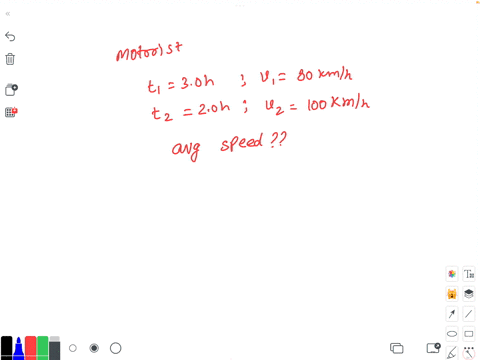 Motorist
t₁ = 3.0h ; v₁ = 80 km/h
t₂ = 2.0h ; v₂ = 100 km/h
avg speed ??